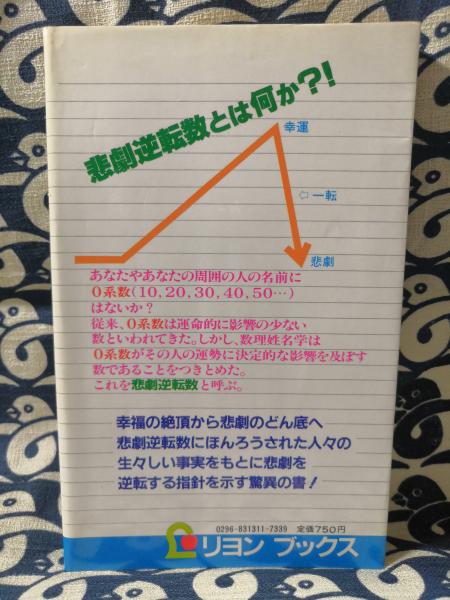 悲劇逆転数とは何か?!
幸運
⇦一転
悲劇
あなたやあなたの周囲の人の名前に
0系数(10,20,30,40,50…)
はないか?
従来、0系数は運命的に影響の少ない
数といわれてきた。しかし、数理姓名学は
0系数がその人の運勢に決定的な影響を及ぼす
数であることをつきとめた。
これを悲劇逆転数と呼ぶ。
幸福の絶頂から悲劇のどん底へ
悲劇逆転数にほんろうされた人々の
生々しい事実をもとに悲劇を
逆転する指針を示す驚異の書!
0296-831311-7339 定価750円
リヨン ブックス